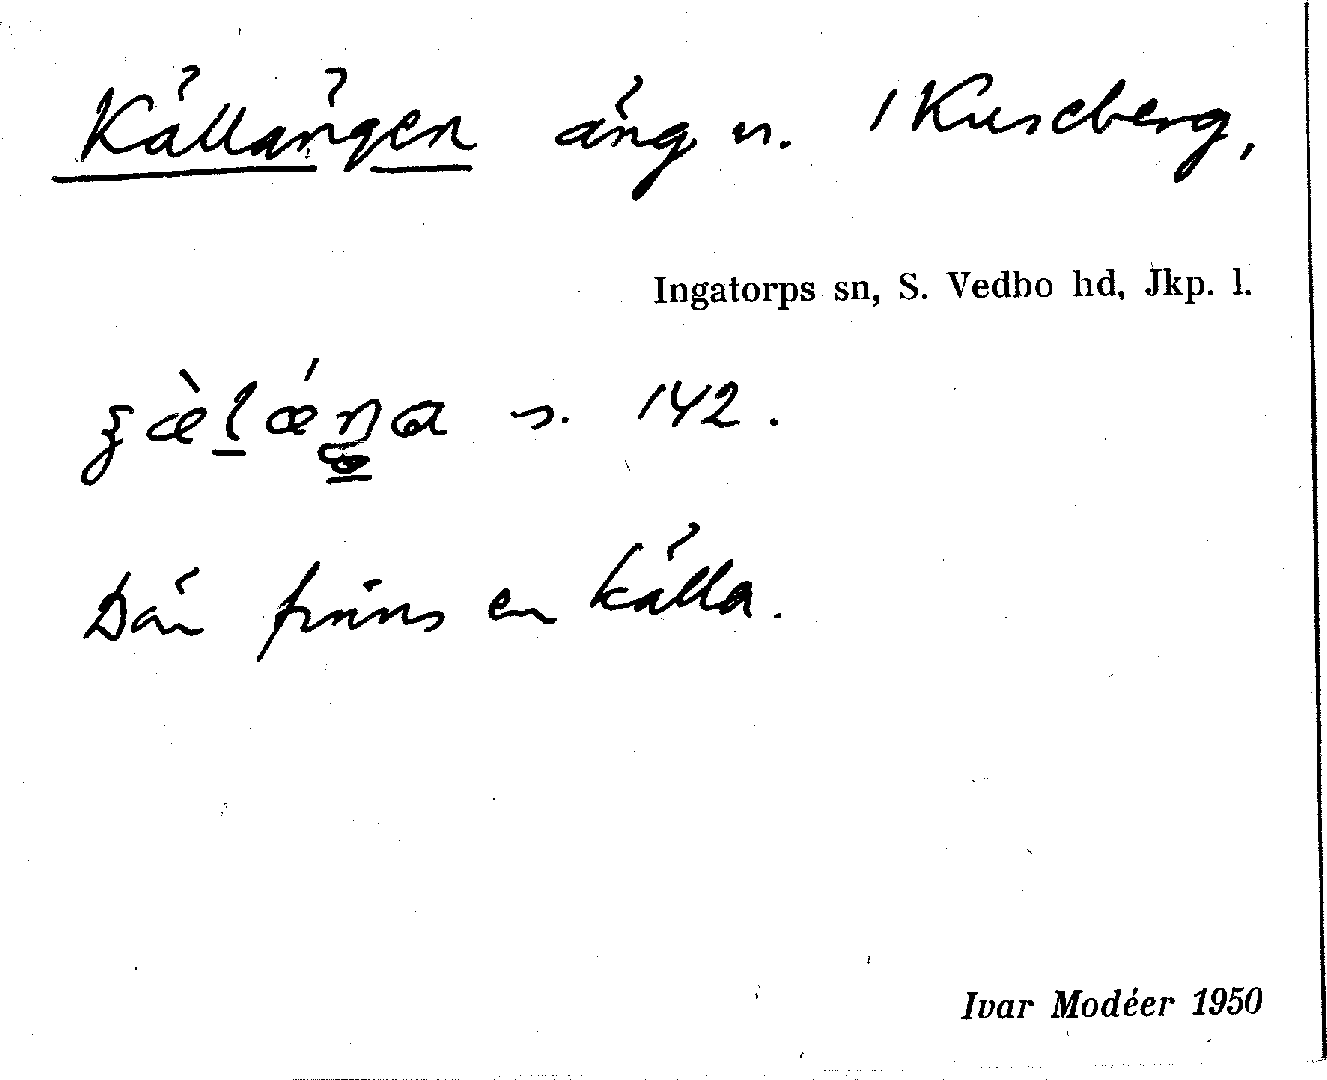 Källängen äng n. 1 Kuseberg,
Ingatorps sn, S. Vedbo hd, Jkp. l.
s. 142.
Där finns en källa.
Ivar Modéer 1950